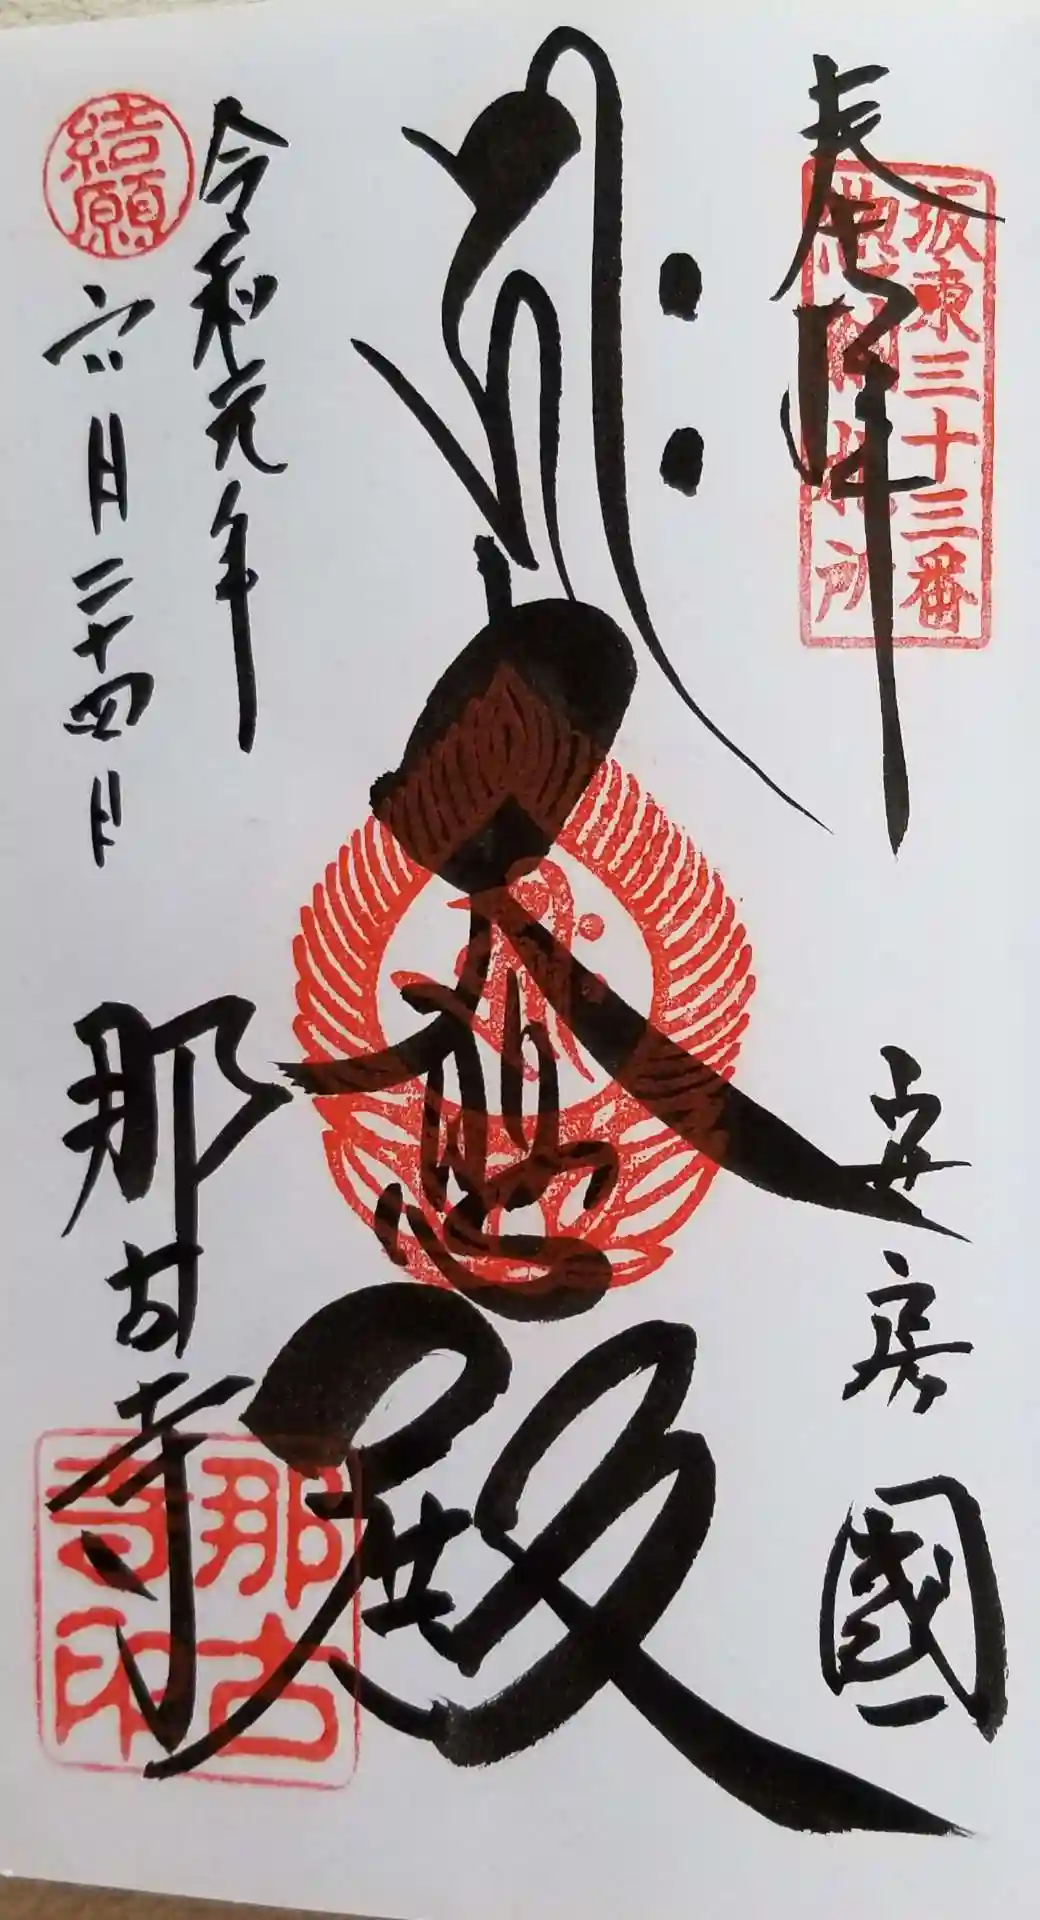 奉拝
坂東三十三番
安房國
大悲殿
令和元年
六月二十四日
結願
那古寺
那古
寺印